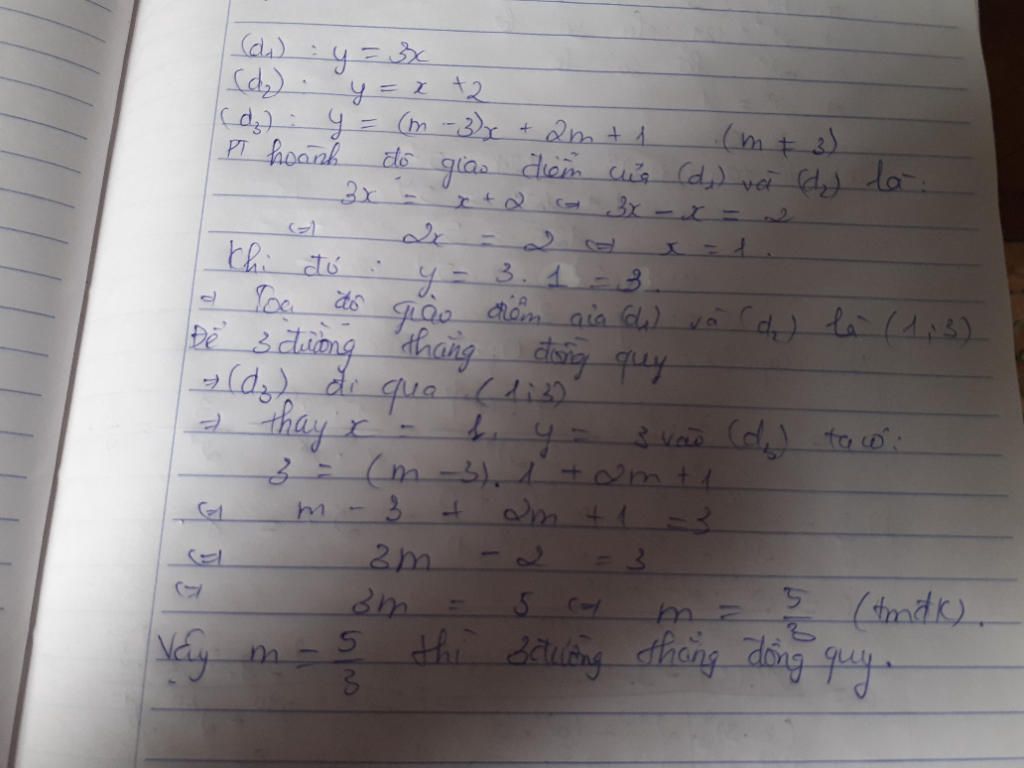 (d₁) : y = 3x
(d₂) : y = x + 2
(d₃) : y = (m - 3)x + 2m + 1 (m ≠ 3)
PT hoành độ giao điểm của (d₁) và (d₂) là:
3x = x + 2 ⇔ 3x - x = 2
⇔ 2x = 2 ⇔ x = 1.
Khi đó : y = 3 . 1 = 3.
⇒ Toạ độ giao điểm của (d₁) và (d₂) là (1;3)
Để 3 đường thẳng đồng quy
⇒ (d₃) đi qua (1;3)
⇒ thay x = 1, y = 3 vào (d₃) ta có:
3 = (m - 3). 1 + 2m + 1
⇔ m - 3 + 2m + 1 = 3
⇔ 3m - 2 = 3
⇔ 3m = 5 ⇔ m = 5/3 (tmđk).
Vậy m = 5/3 thì 3 đường thẳng đồng quy.